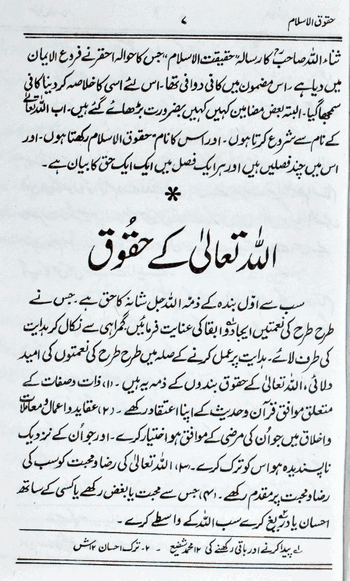 حقوق الاسلام
۷
ثناء اللہ صاحبؒ کا رسالہ "حقیقت الاسلام" جس کا حوالہ احقر نے فروع الایمان
میں دیا ہے۔ اس مضمون میں کافی و وافی تھا۔ اس لئے اسی کا خلاصہ کر دینا کافی
سمجھا گیا۔ البتہ بعض مضامین کہیں کہیں بضرورت بڑھائے گئے ہیں۔ اب اللہ تعالیٰ
کے نام سے شروع کرتا ہوں۔ اور اس کا نام "حقوق الاسلام رکھتا ہوں۔ اور
اس میں چند فصلیں ہیں اور ہر ایک فصل میں ایک ایک حق کا بیان ہے۔
*
اللہ تعالیٰ کے حقوق
سب سے اوّل بندہ کے ذمّہ اللہ جل شانہٗ کا حق ہے۔ جس نے
طرح طرح کی نعمتیں ایجاد و ابقا کی عنایت فرمائیں گمراہی سے نکال کر ہدایت
کی طرف لائے۔ ہدایت پر عمل کرنے کے صلہ میں طرح طرح کی نعمتوں کی امید
دلائی، اللہ تعالیٰ کے حقوق بندوں کے ذمہ یہ ہیں۔ (۱) ذات و صفات کے
متعلق موافق قرآن و حدیث کے اپنا اعتقاد رکھے۔ (۲) عقاید و اعمال و معاملات
و اخلاق میں جو اُن کی مرضی کے موافق ہو اختیار کرے۔ اور جو اُن کے نزدیک
ناپسندیدہ ہو اس کو ترک کرے۔ (۳) اللہ تعالیٰ کی رضا و محبت کو سب کی
رضا و محبت پر مقدم رکھے۔ (۴) جس سے محبت یا بغض رکھے یا کسی کے ساتھ
احسان یا دریغ کرے سب اللہ کے واسطے کرے۔
۱۔ پیدا کرنے اور باقی رکھنے کی ۱۲ محمد شفیع ۔ ۲۔ ترک احسان ۱۲